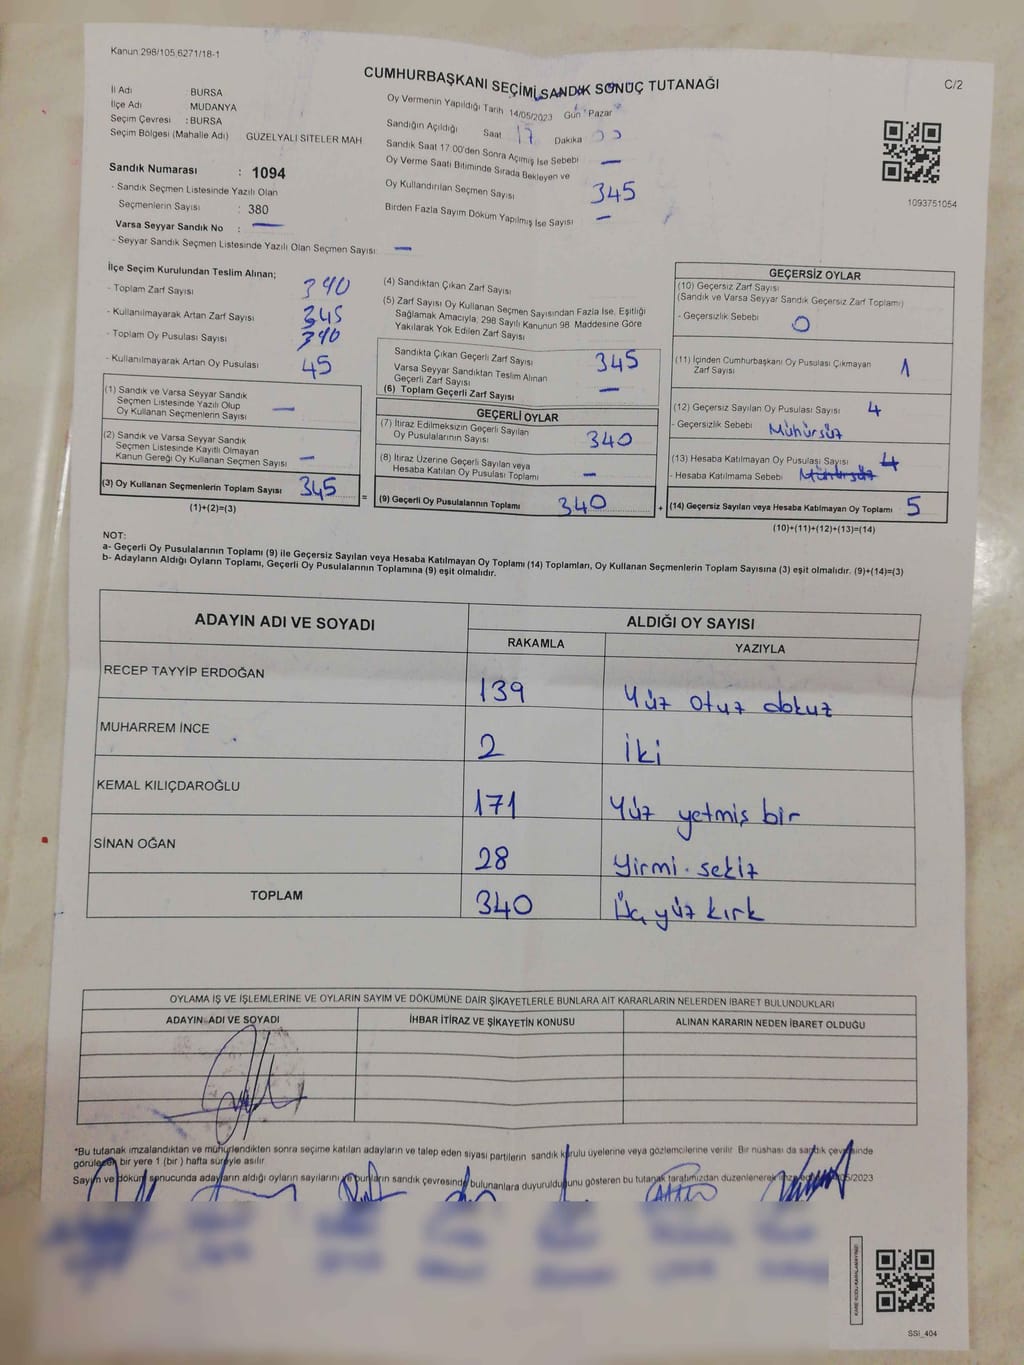 Kanun 298/105,6271/18-1
CUMHURBAŞKANI SEÇİMİ SANDIK SONUÇ TUTANAĞI
C/2
İl Adı : BURSA
İlçe Adı : MUDANYA
Seçim Çevresi : BURSA
Seçim Bölgesi (Mahalle Adı) GÜZELYALI SİTELER MAH
Sandık Numarası : 1094
- Sandık Seçmen Listesinde Yazılı Olan
Seçmenlerin Sayısı : 380
Varsa Seyyar Sandık No : —
- Seyyar Sandık Seçmen Listesinde Yazılı Olan Seçmen Sayısı : —
Oy Vermenin Yapıldığı Tarih 14/05/2023 Gün Pazar
Sandığın Açıldığı Saat 17 Dakika
Sandık Saat 17:00'den Sonra Açılmış İse Sebebi —
Oy Verme Saati Bitiminde Sırada Bekleyen ve
Oy Kullandırılan Seçmen Sayısı 345
Birden Fazla Sayım Döküm Yapılmış İse Sayısı —
1093751054
İlçe Seçim Kurulundan Teslim Alınan;
- Toplam Zarf Sayısı 390
- Kullanılmayarak Artan Zarf Sayısı 345
- Toplam Oy Pusulası Sayısı 390
- Kullanılmayarak Artan Oy Pusulası 45
(1) Sandık ve Varsa Seyyar Sandık
Seçmen Listesinde Yazılı Olup
Oy Kullanan Seçmenlerin Sayısı —
(2) Sandık ve Varsa Seyyar Sandık
Seçmen Listesinde Kayıtlı Olmayan
Kanun Gereği Oy Kullanan Seçmen Sayısı —
(3) Oy Kullanan Seçmenlerin Toplam Sayısı 345
(1)+(2)=(3)
(4) Sandıktan Çıkan Zarf Sayısı
(5) Zarf Sayısı Oy Kullanan Seçmen Sayısından Fazla İse, Eşitliği
Sağlamak Amacıyla, 298 Sayılı Kanunun 98. Maddesine Göre
Yakılarak Yok Edilen Zarf Sayısı
Sandıkta Çıkan Geçerli Zarf Sayısı 345
Varsa Seyyar Sandıktan Teslim Alınan
Geçerli Zarf Sayısı —
(6) Toplam Geçerli Zarf Sayısı
GEÇERLİ OYLAR
(7) İtiraz Edilmeksizin Geçerli Sayılan
Oy Pusulalarının Sayısı 340
(8) İtiraz Üzerine Geçerli Sayılan veya
Hesaba Katılan Oy Pusulası Toplamı —
= (9) Geçerli Oy Pusulalarının Toplamı 340
GEÇERSİZ OYLAR
(10) Geçersiz Zarf Sayısı
(Sandık ve Varsa Seyyar Sandık Geçersiz Zarf Toplamı)
- Geçersizlik Sebebi 0
(11) İçinden Cumhurbaşkanı Oy Pusulası Çıkmayan
Zarf Sayısı 1
(12) Geçersiz Sayılan Oy Pusulası Sayısı 4
- Geçersizlik Sebebi Mühürsüz
(13) Hesaba Katılmayan Oy Pusulası Sayısı 4
- Hesaba Katılmama Sebebi Mühürsüz
+ (14) Geçersiz Sayılan veya Hesaba Katılmayan Oy Toplamı 5
(10)+(11)+(12)+(13)=(14)
NOT:
a- Geçerli Oy Pusulalarının Toplamı (9) ile Geçersiz Sayılan veya Hesaba Katılmayan Oy Toplamı (14) Toplamları, Oy Kullanan Seçmenlerin Toplam Sayısına (3) eşit olmalıdır. (9)+(14)=(3)
b- Adayların Aldığı Oyların Toplamı, Geçerli Oy Pusulalarının Toplamına (9) eşit olmalıdır.
ADAYIN ADI VE SOYADI
ALDIĞI OY SAYISI
RAKAMLA YAZIYLA
RECEP TAYYİP ERDOĞAN 139 Yüz otuz dokuz
MUHARREM İNCE 2 İki
KEMAL KILIÇDAROĞLU 171 Yüz yetmiş bir
SİNAN OĞAN 28 Yirmi sekiz
TOPLAM 340 Üç yüz kırk
OYLAMA İŞ VE İŞLEMLERİNE VE OYLARIN SAYIM VE DÖKÜMÜNE DAİR ŞİKAYETLERLE BUNLARA AİT KARARLARIN NELERDEN İBARET BULUNDUKLARI
ADAYIN ADI VE SOYADI İHBAR İTİRAZ VE ŞİKAYETİN KONUSU ALINAN KARARIN NEDEN İBARET OLDUĞU
*Bu tutanak imzalandıktan ve mühürlendikten sonra seçime katılan adayların ve talep eden siyasi partilerin sandık kurulu üyelerine veya gözlemcilerine verilir. Bir nüshası da sandık çevresinde
görülecek bir yere 1 (bir) hafta süreyle asılır.
Sayım ve döküm sonucunda adayların aldığı oyların sayılarını ve bunların sandık çevresinde bulunanlara duyurulduğunu gösteren bu tutanak tarafımızdan düzenlenerek
SSİ_404